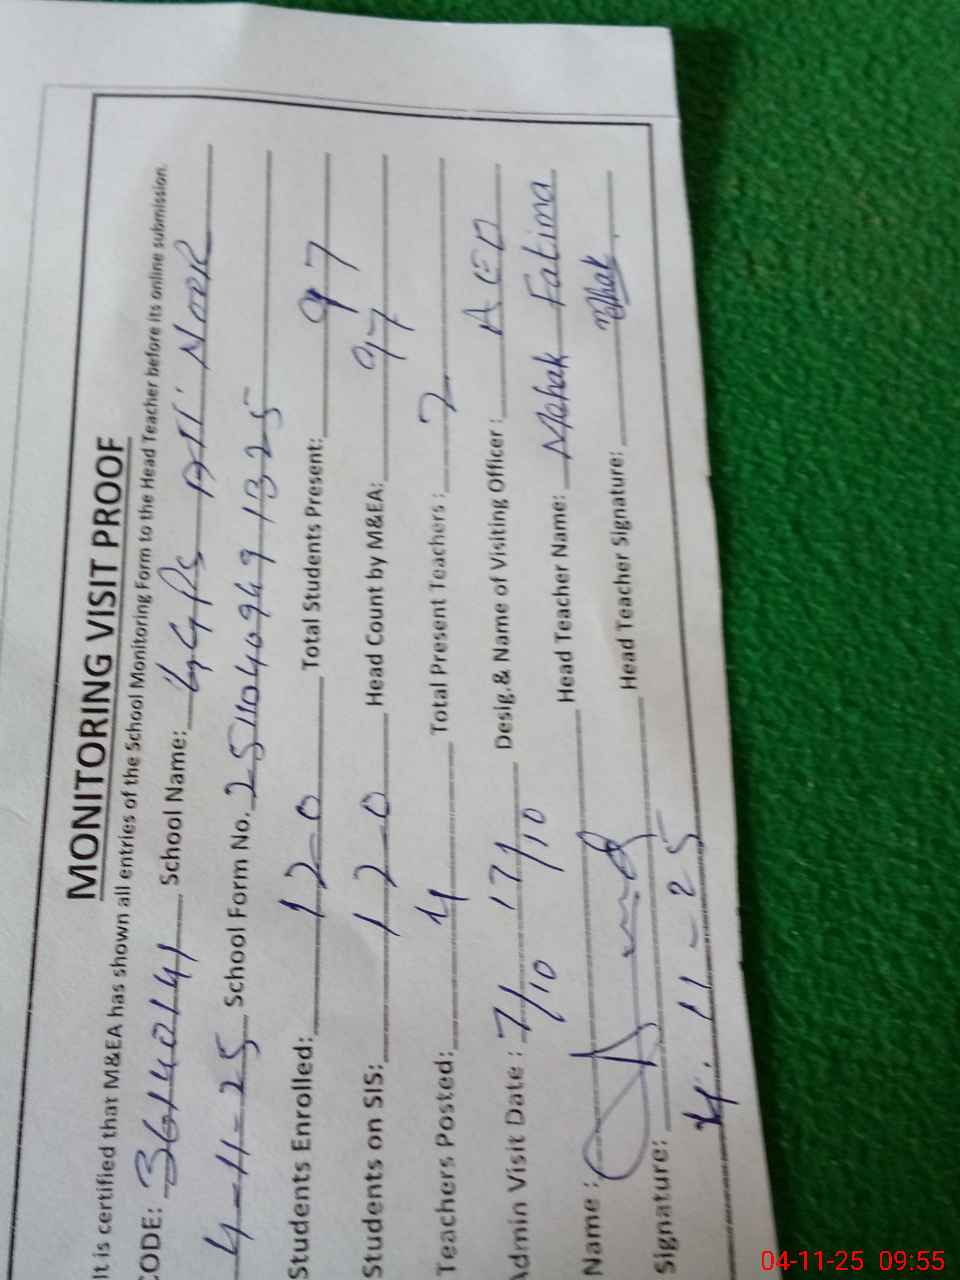 MONITORING VISIT PROOF
It is certified that M&EA has shown all entries of the School Monitoring Form to the Head Teacher before its online submission.
CODE: 36140141 School Name: GGPS Noor
4-11-25 School Form No. 2511040949 1325
Students Enrolled: 120 Total Students Present: 97
Students on SIS: 120 Head Count by M&EA: 97
Teachers Posted: 4 Total Present Teachers :
Admin Visit Date : 7/10 17/10 Desig.& Name of Visiting Officer : AEO
Name : Head Teacher Name: Mahak Fatima
Signature: Head Teacher Signature: Mahak
4.11-25
04-11-25 09:55